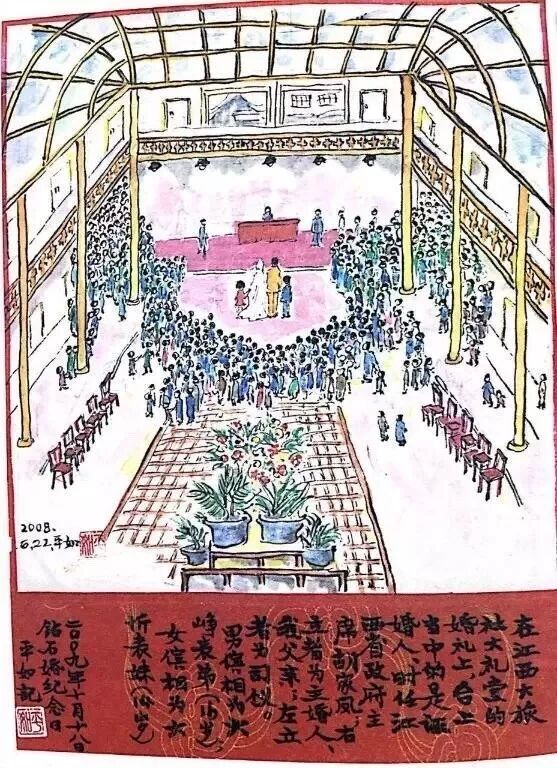 2008.
22,平如
在江西大旅
社大礼堂的
婚礼上,台上
当中的是证
婚人,时任江
西省政府主
席胡家凤,右
立者为主婚人、
我父亲,左立
者为司仪。
男傧相为少
峥表弟(16岁),
女傧相为少
忻表妹(14岁)
二〇〇九年十月十八日
钻石婚纪念日
平如记